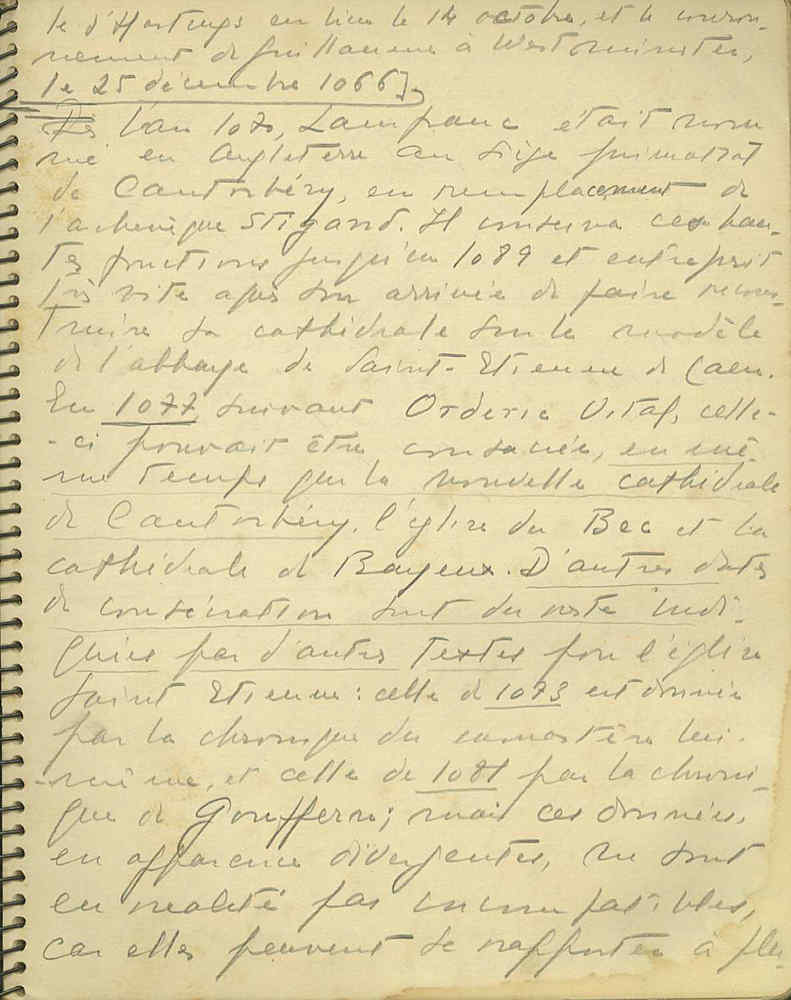 le d'Hastings eut lieu le 14 octobre, et le couron-
nement de Guillaume à Westminster,
le 25 décembre 1066],
Dès l'an 1070, Lanfranc était nom
mé en Angleterre au siège primatial
de Cantorbéry, en remplacement de
l'archevêque Stigand. Il conserva ces hau-
tes fonctions jusqu'en 1089 et entreprit
très vite après son arrivée de faire recons-
truire sa cathédrale sur le modèle
de l'abbaye de Saint-Etienne de Caen.
En 1077, suivant Orderic Vital, celle-
-ci pouvait être consacrée, en mê-
me temps que la nouvelle cathédrale
de Cantorbéry, l'église du Bec et la
cathédrale de Bayeux. D'autres dates
de consécration sont du reste indi-
quées par d'autres textes pour l'église
Saint Etienne : celle de 1073 est donnée
par la chronique du monastère lui-
-même, et celle de 1081 par la chroni-
que de Gouffern ; mais ces données,
en apparence divergentes, ne sont
en réalité pas incompatibles,
car elles peuvent se rapporter à plu